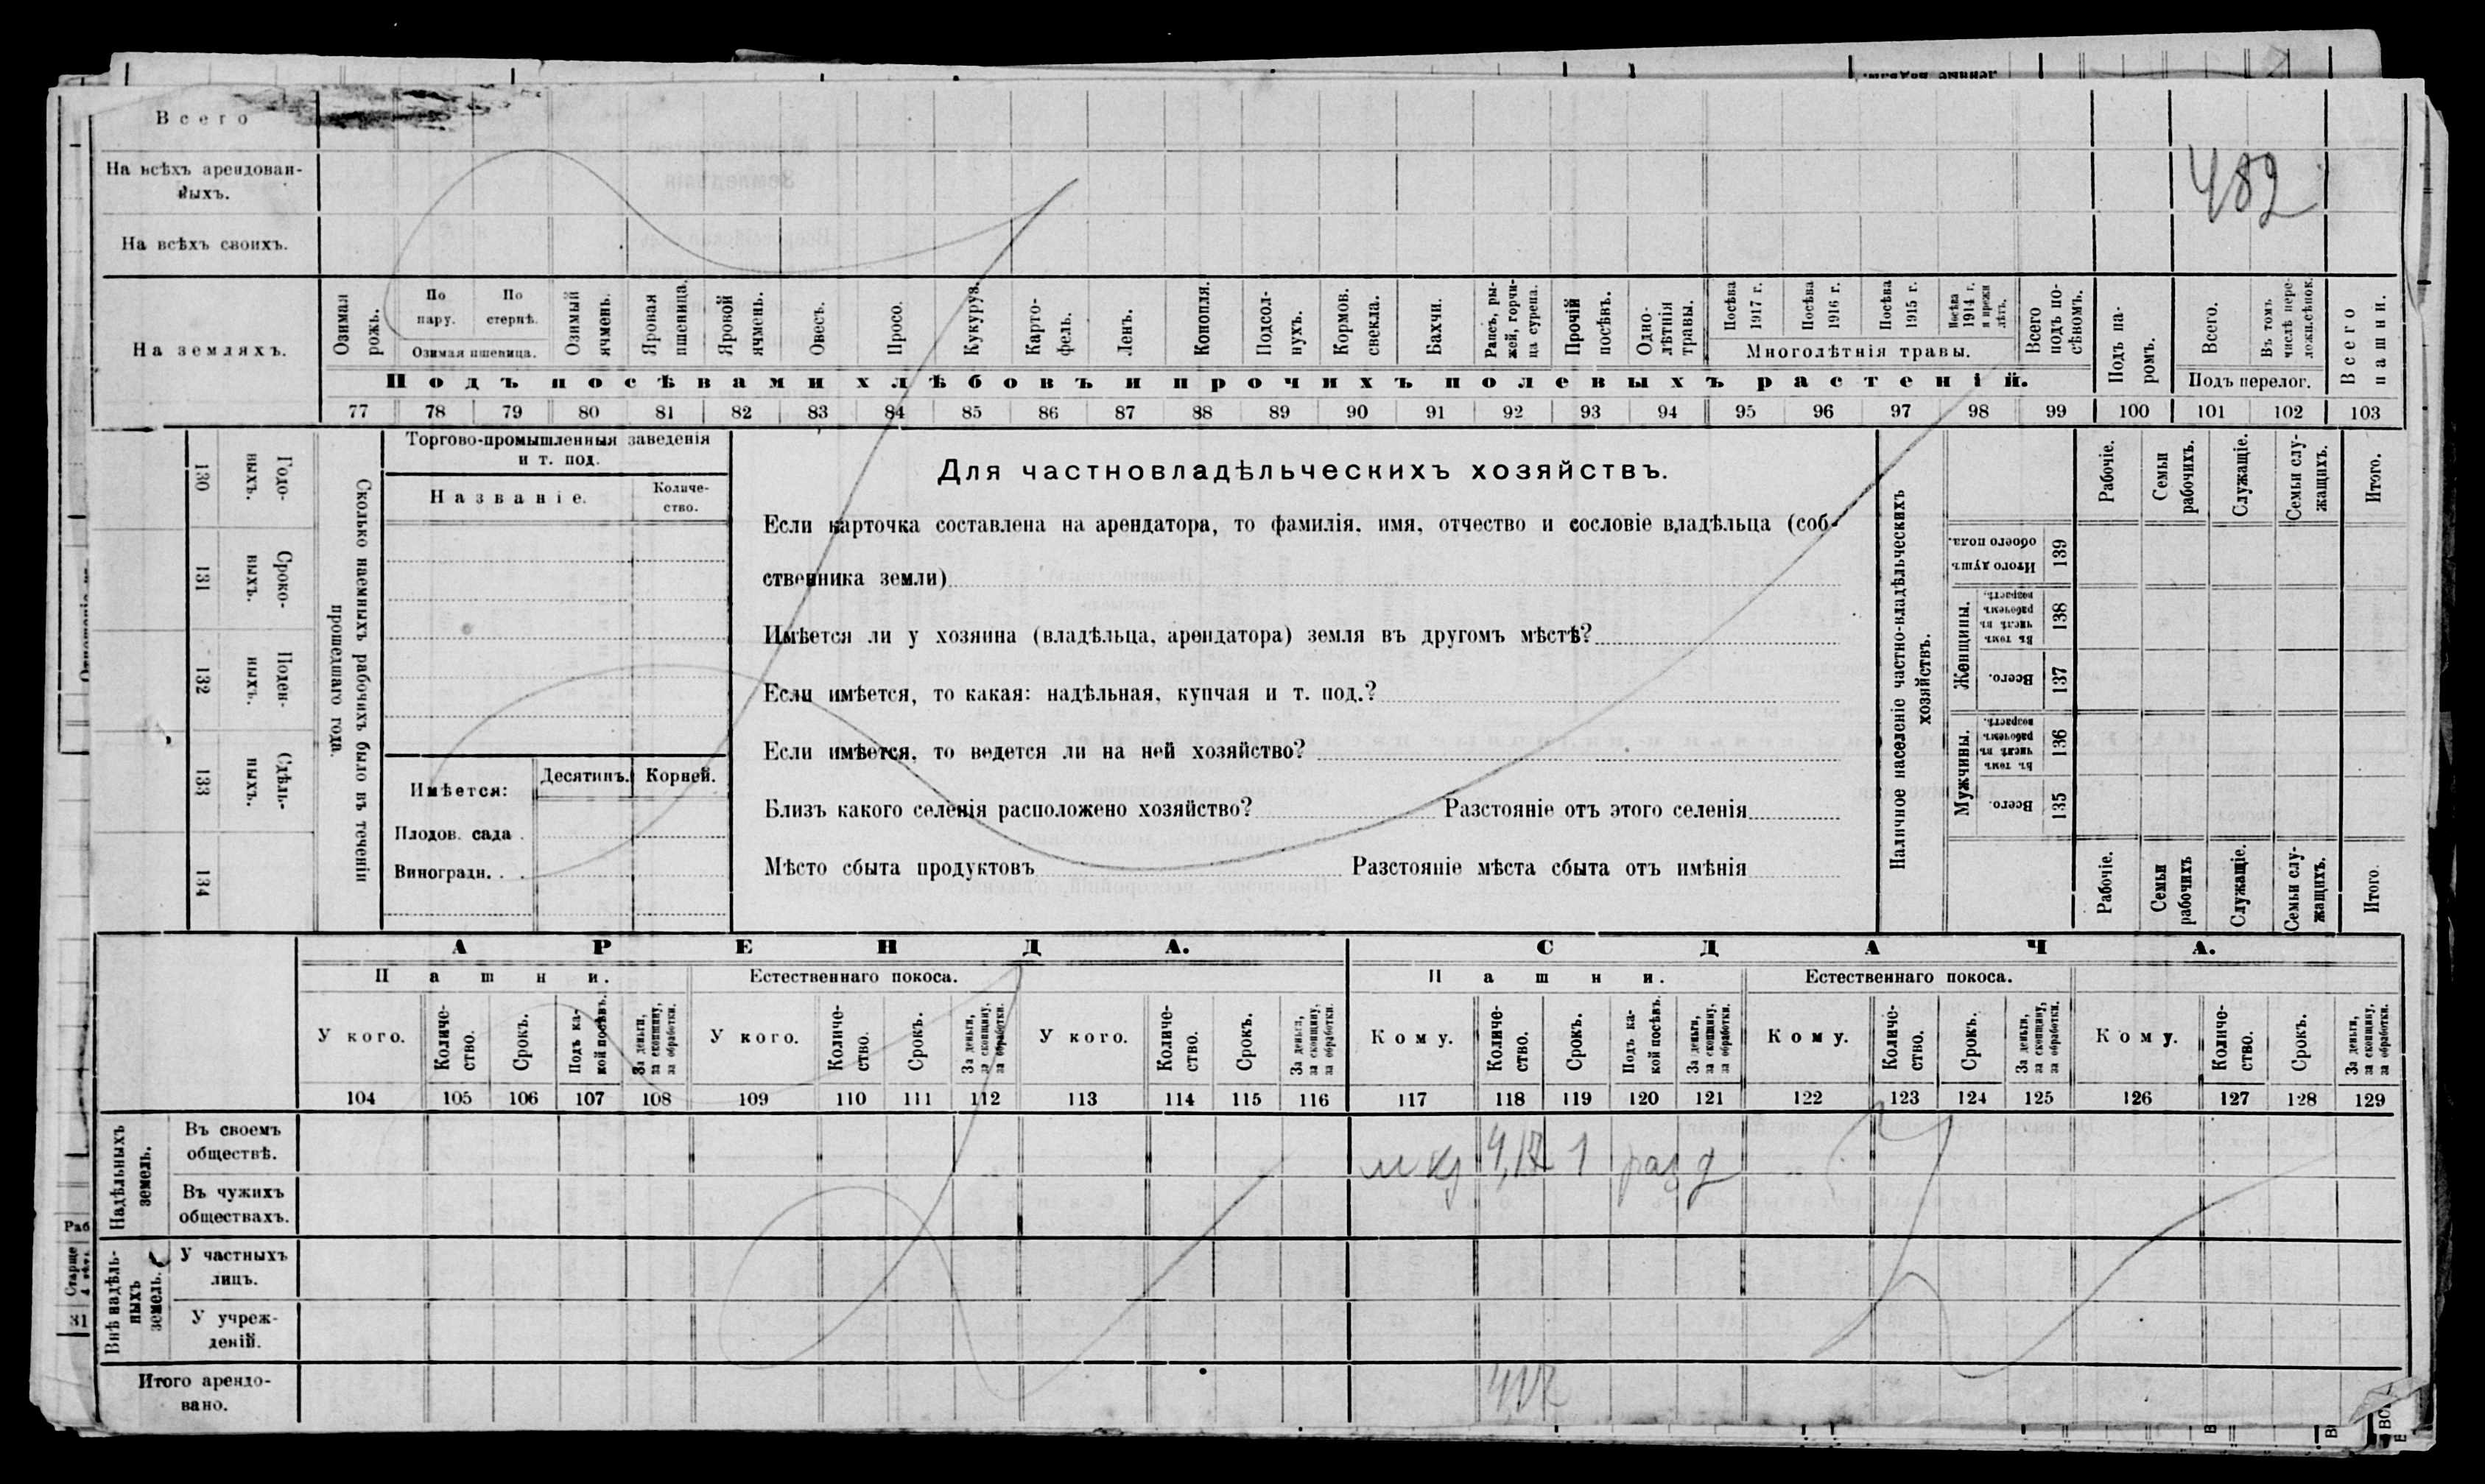 Всего
На всѣхъ арендован-
ныхъ.
482
На всѣхъ своихъ.
На земляхъ.
Озимая рожь.
По пару.
По стернѣ.
Озимая пшеница.
Озимый ячмень.
Яровая пшеница.
Яровой ячмень.
Овесъ.
Просо.
Кукуруз.
Карто-
фель.
Ленъ.
Конопля.
Подсол-
нухъ.
Кормов. свекла.
Бахчи.
Рапсъ, ры-
жей, горчи-
ца сурепа.
Прочій посѣвъ.
Одно-
лѣтнія травы.
Посѣва 1917 г.
Посѣва 1916 г.
Посѣва 1915 г.
Посѣва 1914 г. и прежн. лѣтъ.
Многолѣтнія травы.
Всего подъ по-
сѣвомъ.
Подъ посѣвами хлѣбовъ и прочихъ полевыхъ растеній.
Подъ па-
ромъ.
Всего.
Въ томъ числѣ пере-
ложн.сѣнок.
Подъ перелог.
Всего пашни.
77 78 79 80 81 82 83 84 85 86 87 88 89 90 91 92 93 94 95 96 97 98 99 100 101 102 103
130 Годо-
ныхъ.
131 Сроко-
ныхъ.
132 Поден-
ныхъ.
133 Сдѣль-
ныхъ.
134
Сколько наемныхъ рабочихъ было въ теченіи
прошедшаго года.
Торгово-промышленныя заведенія
и т. под.
Названіе.
Количе-
ство.
Имѣется:
Десятинъ.
Корней.
Плодов. сада .
Виноградн. . .
Для частновладѣльческихъ хозяйствъ.
Если карточка составлена на арендатора, то фамилія, имя, отчество и сословіе владѣльца (соб-
ственника земли)
Имѣется ли у хозяина (владѣльца, арендатора) земля въ другомъ мѣстѣ?
Если имѣется, то какая: надѣльная, купчая и т. под.?
Если имѣется, то ведется ли на ней хозяйство?
Близъ какого селенія расположено хозяйство? Разстояніе отъ этого селенія
Мѣсто сбыта продуктовъ Разстояніе мѣста сбыта отъ имѣнія
Наличное населеніе частно-владѣльческихъ
хозяйствъ.
Рабочіе.
Семьи рабочихъ.
Служащіе.
Семьи слу-
жащихъ.
Итого.
Итого душъ обоего пола. 139
Женщины.
Въ томъ числѣ въ рабочемъ возрастѣ. 138
Всего. 137
Мужчины.
Въ томъ числѣ въ рабочемъ возрастѣ. 136
Всего. 135
Рабочіе.
Семьи рабочихъ
Служащіе.
Семьи слу-
жащихъ.
Итого.
АРЕНДА.
СДАЧА.
Пашни.
Естественнаго покоса.
Пашни.
Естественнаго покоса.
У кого.
Количе-
ство.
Срокъ.
Подъ ка-
кой посѣвъ.
За деньги, за скопщину, за обработки.
У кого.
Количе-
ство.
Срокъ.
За деньги, за скопщину, за обработки.
У кого.
Количе-
ство.
Срокъ.
За деньги, за скопщину, за обработки.
Кому.
Количе-
ство.
Срокъ.
Подъ ка-
кой посѣвъ.
За деньги, за скопщину, за обработки.
Кому.
Количе-
ство.
Срокъ.
За деньги, за скопщину, за обработки.
Кому.
Количе-
ство.
Срокъ.
За деньги, за скопщину, за обработки.
104 105 106 107 108 109 110 111 112 113 114 115 116 117 118 119 120 121 122 123 124 125 126 127 128 129
Надѣльныхъ земель.
Въ своемъ
обществѣ.
1
Въ чужихъ
обществахъ.
Внѣ надѣль-
ныхъ земель.
У частныхъ
лицъ.
У учреж-
деній.
Итого арендо-
вано.
Раб
Старше
31